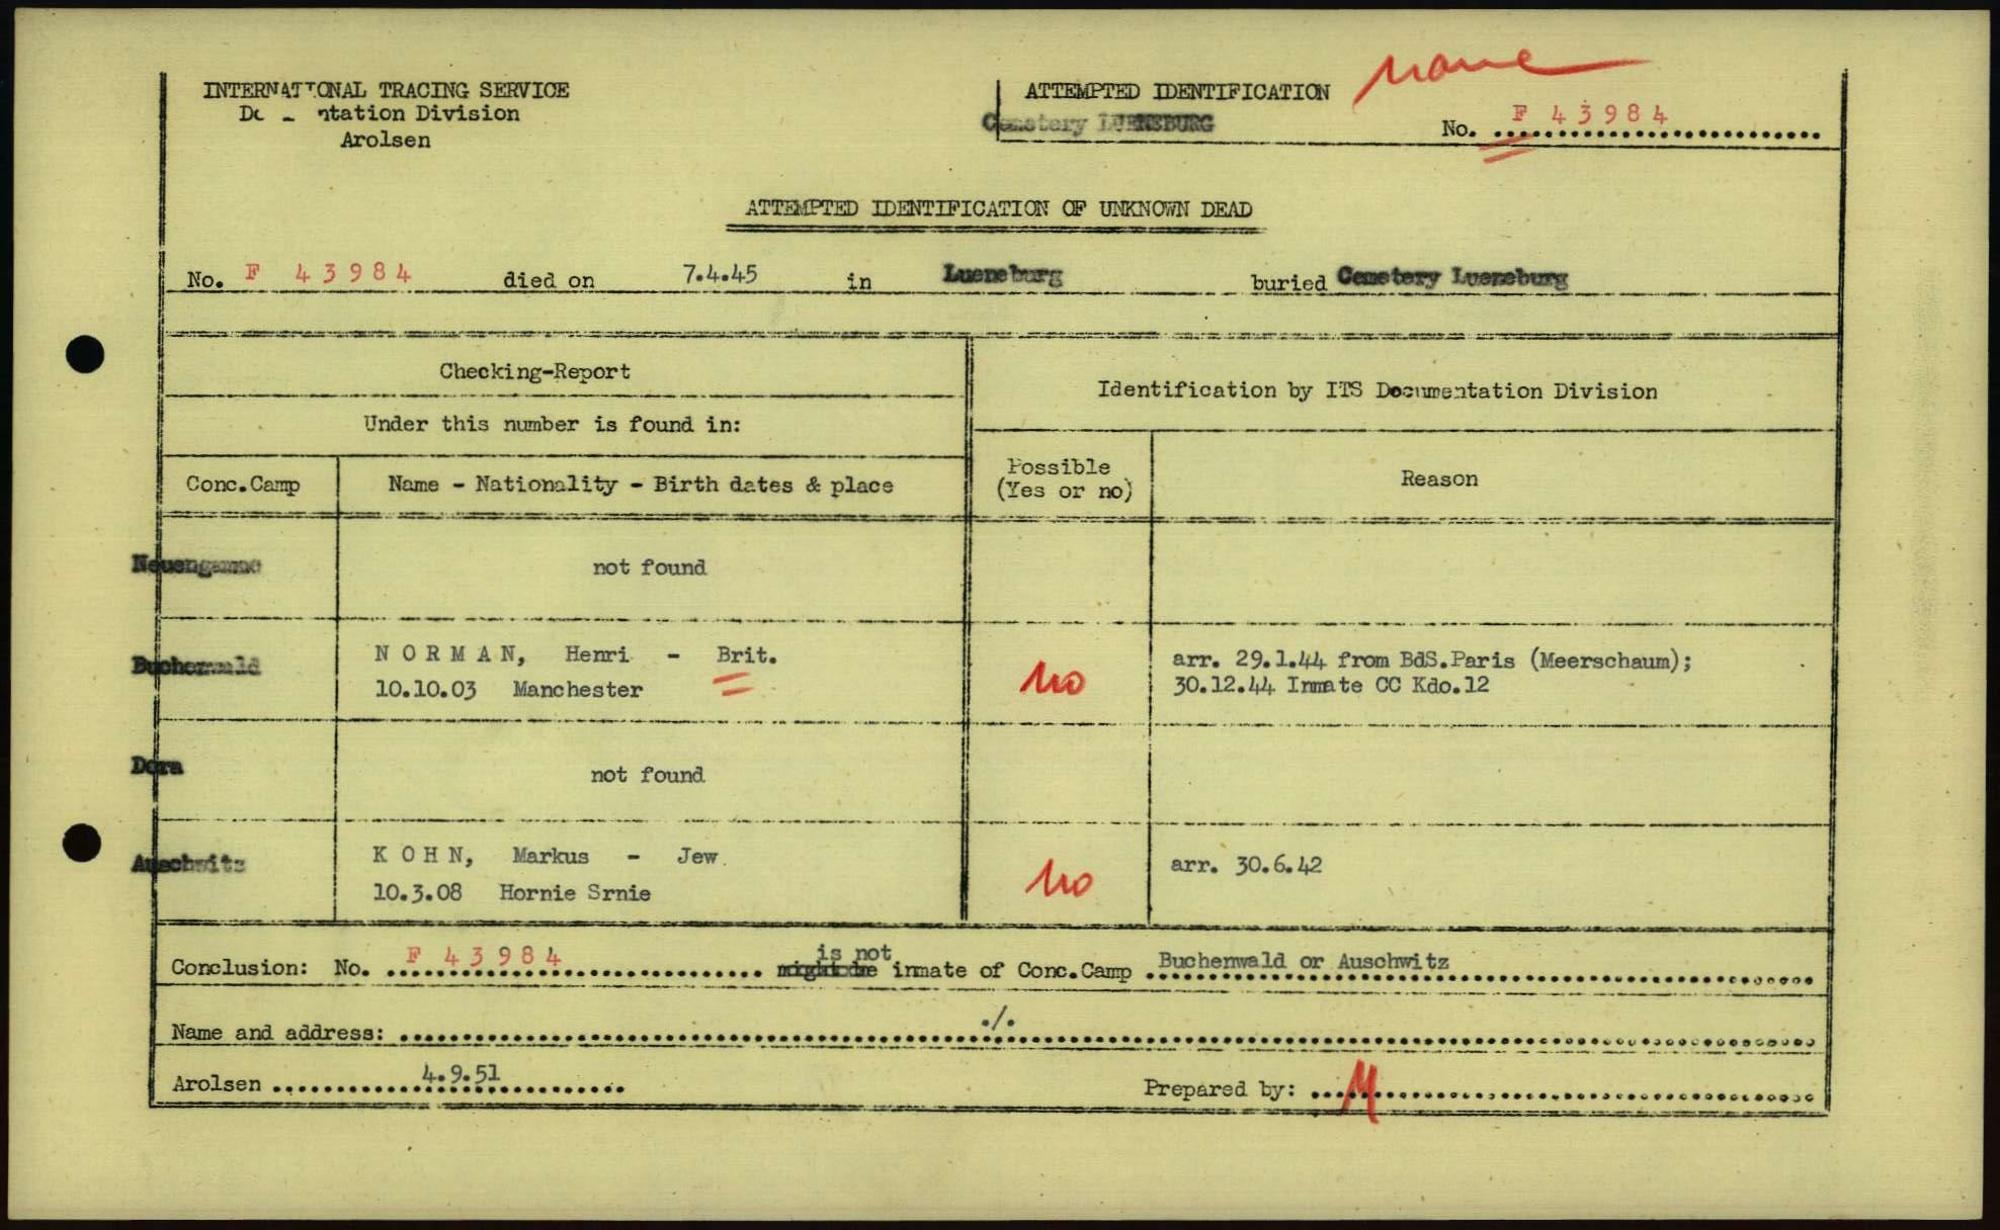 none
INTERNATIONAL TRACING SERVICE
ntation Division
Arolsen
ATTEMPTED IDENTIFICATION
Cemetery LUENEBURG
No. F 43984
ATTEMPTED IDENTIFICATION OF UNKNOWN DEAD
No. F 43984 died on 7.4.45 in Lueneburg buried Cemetery Lueneburg
Checking-Report
Identification by ITS Documentation Division
Under this number is found in:
Conc.Camp
Name - Nationality - Birth dates & place
Possible
(Yes or no)
Reason
Neuengamme
not found
Buchenwald
NORMAN, Henri - Brit.
10.10.03 Manchester
no
arr. 29.1.44 from BdS.Paris (Meerschaum);
30.12.44 Inmate CC Kdo.12
Dora
not found
Auschwitz
KOHN, Markus - Jew.
10.3.08 Hornie Srnie
no
arr. 30.6.42
Conclusion: No. F 43984 is not inmate of Conc.Camp Buchenwald or Auschwitz
Name and address: ./.
Arolsen 4.9.51
Prepared by: M